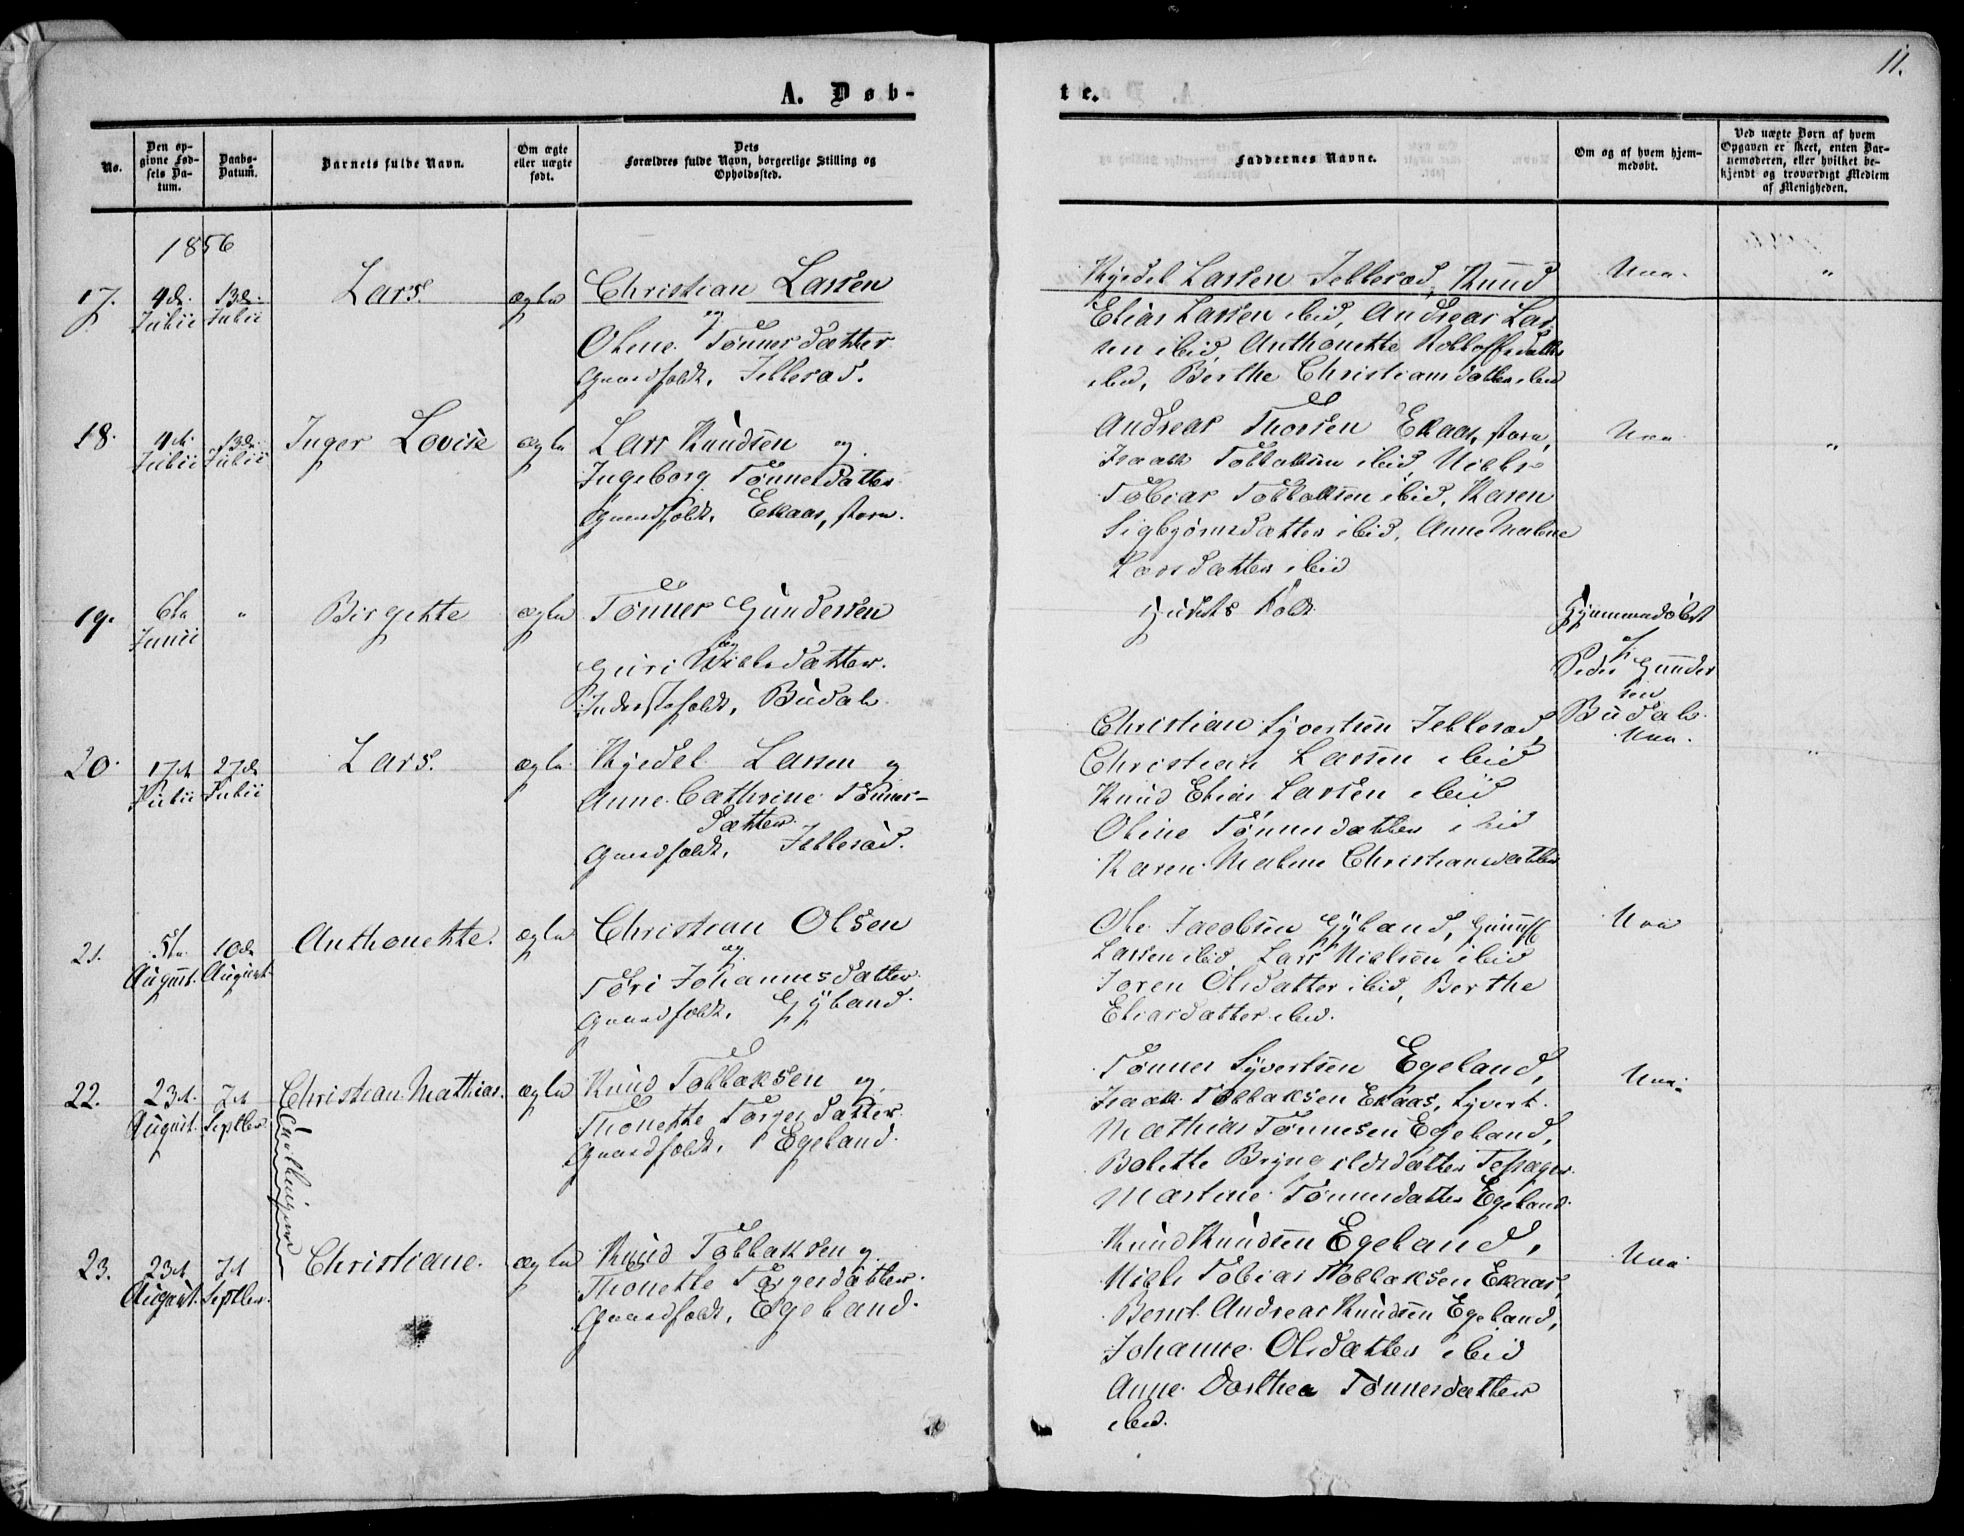 11.
A. Døb-
te.
No.
Den op-
givne Fød-
sels Da-
tum.
Daabs-
Datum.
Barnets fulde Navn.
Om ægte
eller uægte
født.
Dets
Forældres fulde Navn, borgerlige Stilling og
Opholdssted.
Faddernes Navne.
Om og af hvem hjem-
medøbt.
Ved uægte Børn af hvem
Opgaven er skeet, enten Bar-
nemoderen, eller hvilket be-
kjendt og troværdigt Medlem
af Menigheden.
1856
17.
4de
Julii
13de
Julii
Lars
ægte
Christian Larsen
og
Oline Tønnesdatter
Gaardfolk, Jellerød.
Kjedel Larsen Jellerød, Knud
Elias Larsen ibid, Andreas Lar-
sen ibid, Anthonette
ibid, Berthe Christiansdatter ibid
18.
4de
Julii
13de
Julii
Inger Lovise
ægte
Lars Knudsen og
Ingeborg Tønnesdatter
Gaardfolk, Ekaas, store.
Andreas Thorsen Ekaas, store,
Isaak Tollaksen ibid, Niels
Tobias Tollaksen ibid, Karen
Sigbjørnsdatter ibid, Anne Malene
Larsdatter ibid
19.
6te
Junii
"
Birgitte
ægte
Tønnes Gundersen
og
Guri Nielsdatter.
Inderstefolk, Budal.
Hjemmedøbt
af
Peder Gunder
sen
Budal.
20.
17de
Julii
27de
Julii
Lars.
ægte
Kjedel Larsen og
Anne Cathrine Tønnes-
datter.
Gaardfolk, Jellerød.
Christian Syvertsen Jellerød,
Christian Larsen ibid
Knud Elias Larsen ibid
Oline Tønnesdatter ibid
Karen Malene Christiansdatter
21.
5te
August.
10de
August.
Anthonette.
ægte
Christian Olsen
og
Tori Johannesdatter
Gaardfolk, Gyland.
Ole Jacobsen Gyland,
Larsen ibid, Lars Nielsen ibid
Joren Olsdatter ibid, Berthe
Eliasdatter ibid.
22.
23de
August.
7de
Septber.
Christian Mathias.
Tvillinger
ægte
Knud Tollaksen og
Thonette Torgersdatter
Gaardfolk, Egeland.
Tønnes Syvertsen Egeland,
Isaak Tollaksen Ekaas, Syvert
Mathias Tønnesen Egeland,
Bolette
Martine Tønnesdatter Egeland.
23.
23de
August.
7de
Septber.
Christiane.
ægte
Knud Tollaksen og
Thonette Torgersdatter
Gaardfolk, Egeland.
Knud Knudsen Egeland,
Niels Tobias Tollaksen Ekaas,
Bernt Andreas Knudsen Egeland,
Johanne Olsdatter ibid
Anne Dorthea Tønnesdatter
ibid.